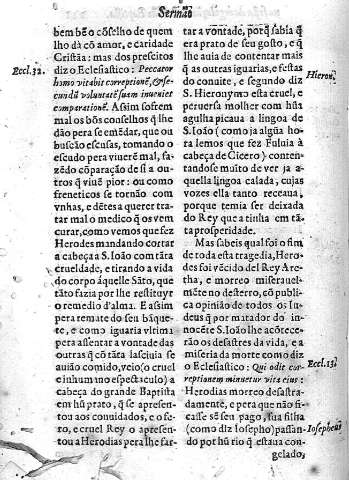 Sermão
bem bẽ o cõselho de quem
lho dà cõ amor, e caridade
Cristãa: mas dos prescitos
diz o Eclesiastico: Peccator
homo vitabit correptionẽ, & se-
cundũ voluntatẽ suam inueniet
comparationẽ. Assim sofrem
mal os bõs conselhos q̃ lhe
dão pera se emẽdar, que ou
buscão escusas, tomando o
escudo pera viuerẽ mal, fazẽ-
dõ cõparação de si a ou-
tros q̃ viuẽ pior: ou como
freneticos se tornão con-
vnhas, e dẽtes a querer tra-
tar mal o medico q̃ os vem
curar, como vemos que fez
Herodes mandando cortar
a cabeça a S. Ioão com tãta
crueldade, e tirando a vida
do corpo àquelle Sãto, que
tãto fazia por lhe restituyr
o remedio d'alma. E assim
pera remate do seu bãque-
te, e como iguaria vltima
pera assentar a vontade das
outras q̃ cõ tãta lasciuia se
auião comido, veio (o cruel
e inhumano espectaculo) a
cabeça do grande Baptista
em hũ prato, q̃ se apresen-
tou aos conuidados, e o fe-
ro, e cruel Rey o apresen-
tou a Herodias pera lhe far-
Eccl. 32.
tar a vontade, porq̃ sabia q̃
era prato de seu gosto, e q̃
lhe auia de contentar mais
q̃ as outras iguarias, e festas
do conuite, e segundo diz
S. Hieronymo esta cruel, e
peruersa molher com hũa
agulha picaua a lingoa de
S. Ioão (como ja algũa ho-
ra lemos que fez Fuluia à
cabeça de Cicero) conten-
tandose muito de ver ja a-
quella lingoa calada, cujas
vozes ella tanto receaua,
porque temia ser deixada
do Rey que a tinha em tã-
ta prosperidade.
Mas sabeis qual foi o fim
de toda esta tragedia, Hero-
des foi vẽcido del Rey Are-
tha, e morreo miserauel-
mẽte no desterro, cõ publi-
ca opinião de todos os Iu-
deus q̃ por matador do in-
nocẽte S. Ioão lhe acõtece-
rão os desastres da vida, e a
miseria da morte como diz
o Eclesiastico: Qui odit cor-
reptionem minuetur vita eius:
Herodias morreo desastra-
damente, e pera que não fi-
casse sẽ seu pago, sua filha
(como diz Iosepho) passan-
do por hũ rio q̃ estaua con-
gelado,
Hieron.
Eccl. 19.
Iosephus